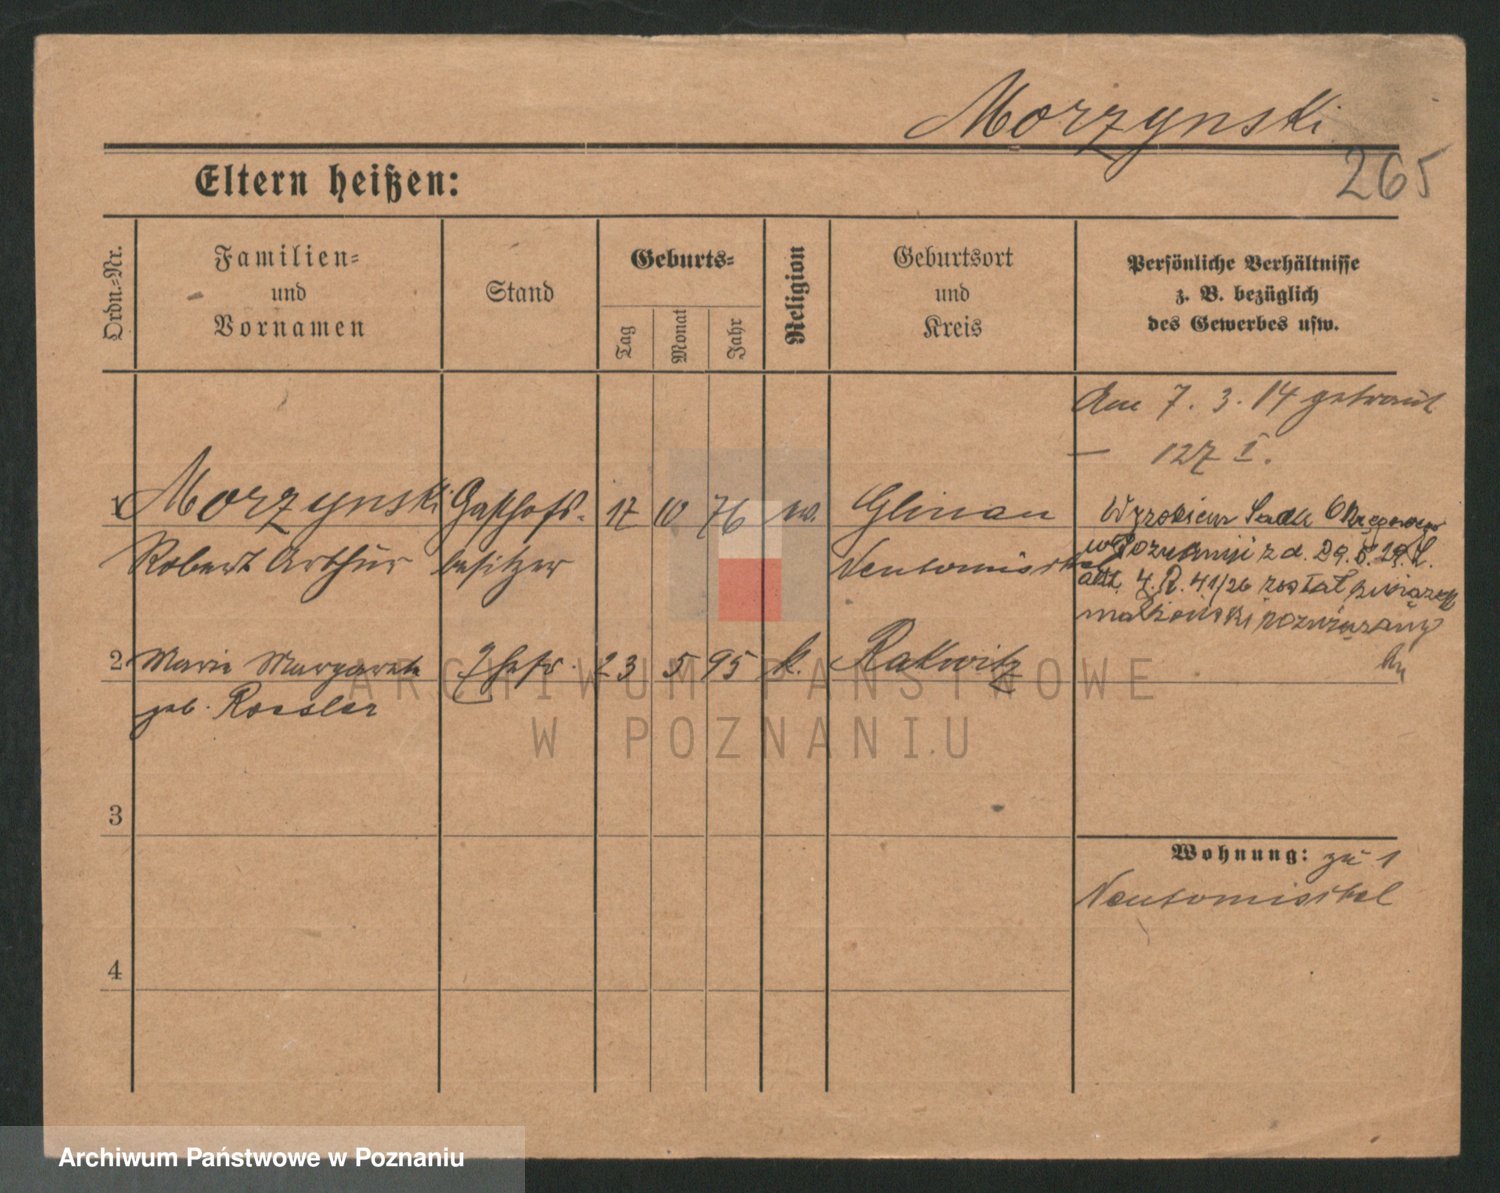 Morzynski
265
Eltern heißen:
Ordn.=Nr.
Familien=
und
Vornamen
Stand
Geburts=
Tag
Monat
Jahr
Religion
Geburtsort
und
Kreis
Persönliche Verhältnisse
z. B. bezüglich
des Gewerbes usw.
Am 7. 3. 14 getraut
— 127 I.
1 Morzynski Gasthofs- 17 10 76 Glinau
Robert Arthur besitzer Neutomischel
Wyrokiem Sądu Okręgowego
w Poznaniu z d. 29. 5. 29. L.
akt. 4. R. 41/26 został związek
małżeński rozwiązany
2 Marie Margarete Ehefr. 23 5 95 k. Rakwitz
geb. Roesler
3
4
Wohnung: zu 1
Neutomischel
ARCHIWUM PAŃSTWOWE
W POZNANIU
Archiwum Państwowe w Poznaniu